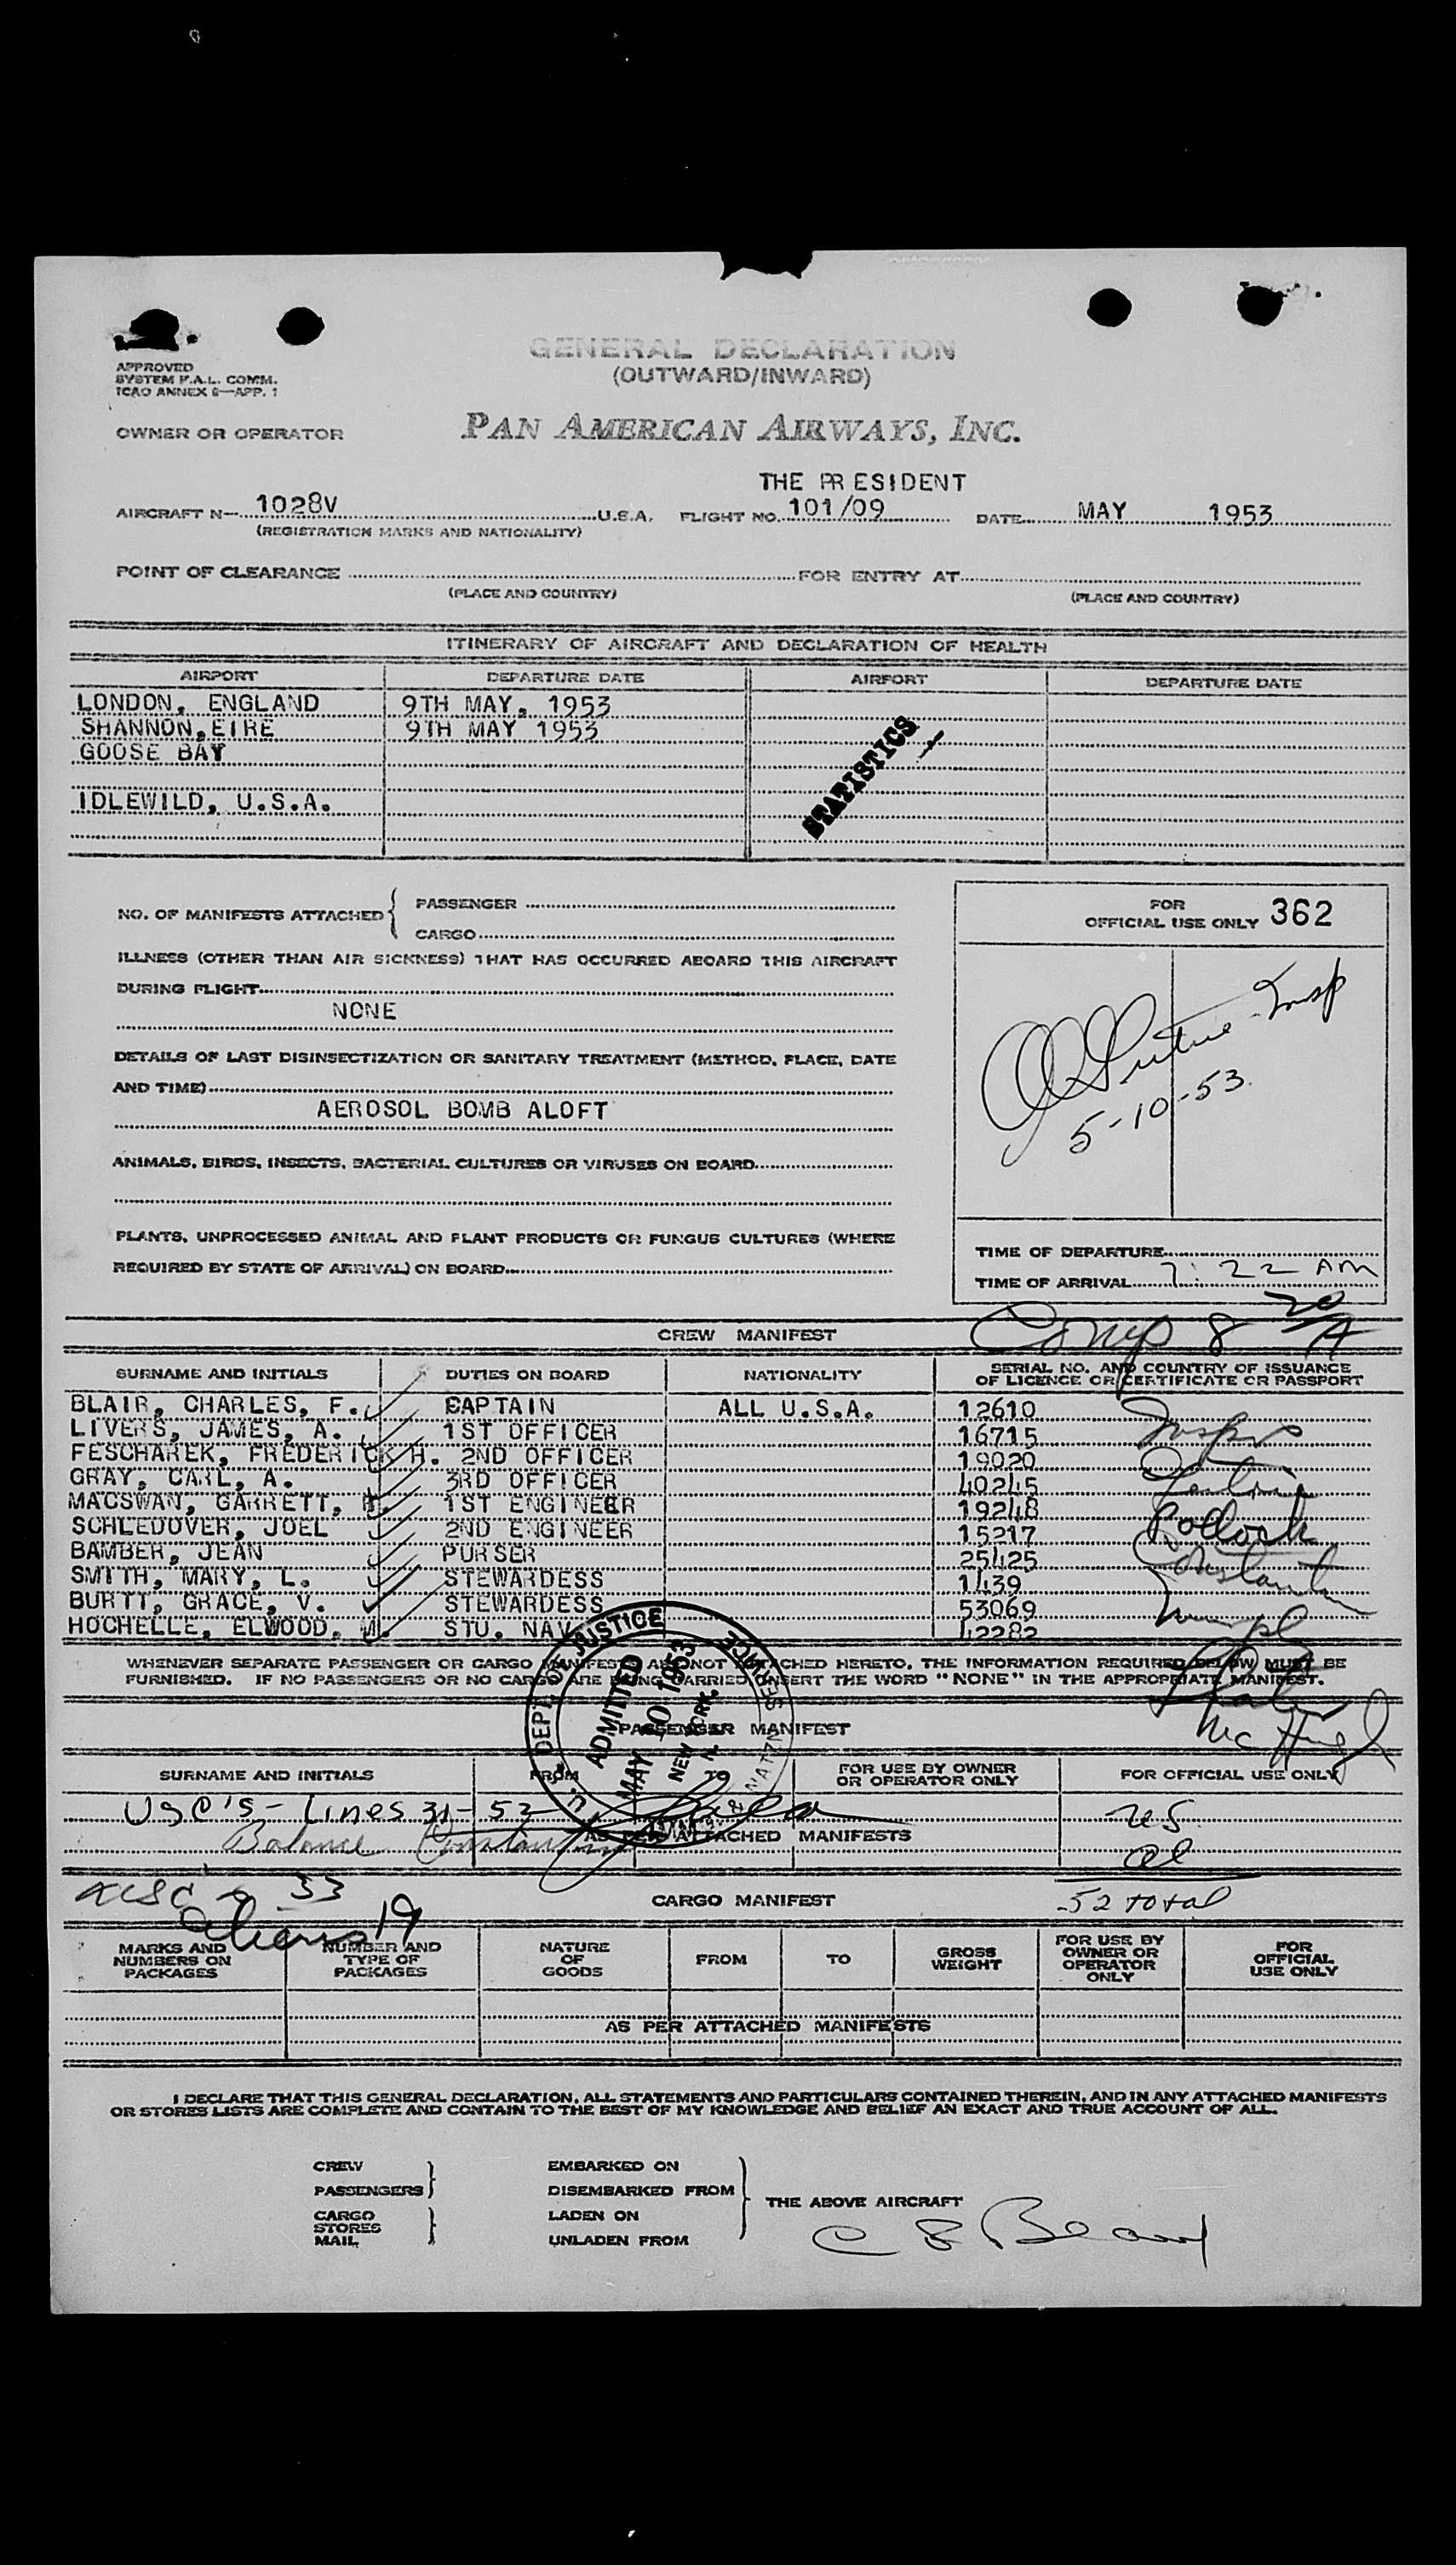 APPROVED
SYSTEM F.A.L. COMM.
ICAO ANNEX 9—APP. 1
GENERAL DECLARATION
(OUTWARD/INWARD)
OWNER OR OPERATOR PAN AMERICAN AIRWAYS, INC.
THE PR ESIDENT
AIRCRAFT N— 1028V U.S.A. FLIGHT NO. 101/09 DATE MAY 1953
(REGISTRATION MARKS AND NATIONALITY)
POINT OF CLEARANCE FOR ENTRY AT
(PLACE AND COUNTRY) (PLACE AND COUNTRY)
ITINERARY OF AIRCRAFT AND DECLARATION OF HEALTH
AIRPORT DEPARTURE DATE AIRPORT DEPARTURE DATE
LONDON, ENGLAND 9TH MAY, 1953
SHANNON, EIRE 9TH MAY 1953
GOOSE BAY
STATISTICS
IDLEWILD, U.S.A.
NO. OF MANIFESTS ATTACHED { PASSENGER
CARGO
FOR
OFFICIAL USE ONLY 362
ILLNESS (OTHER THAN AIR SICKNESS) THAT HAS OCCURRED ABOARD THIS AIRCRAFT
DURING FLIGHT
NONE
Insp
5-10-53
DETAILS OF LAST DISINSECTIZATION OR SANITARY TREATMENT (METHOD, PLACE, DATE
AND TIME)
AEROSOL BOMB ALOFT
ANIMALS, BIRDS, INSECTS, BACTERIAL CULTURES OR VIRUSES ON BOARD
PLANTS, UNPROCESSED ANIMAL AND PLANT PRODUCTS OR FUNGUS CULTURES (WHERE
REQUIRED BY STATE OF ARRIVAL) ON BOARD
TIME OF DEPARTURE
TIME OF ARRIVAL 7:22 AM
Comp 8 20/A
CREW MANIFEST
SURNAME AND INITIALS DUTIES ON BOARD NATIONALITY SERIAL NO. AND COUNTRY OF ISSUANCE
OF LICENCE OR CERTIFICATE OR PASSPORT
BLAIR, CHARLES, F. CAPTAIN ALL U.S.A. 12610
LIVERS, JAMES, A. 1ST OFFICER 16715
FESCHAREK, FREDERICK H. 2ND OFFICER 19020
GRAY, CARL, A. 3RD OFFICER 40245
MACSWAN, GARRETT, 1ST ENGINEER 19248
SCHLEDOVER, JOEL 2ND ENGINEER 15217 Pollock
BAMBER, JEAN PURSER 25425
SMITH, MARY, L. STEWARDESS 1439
BURTT, GRACE, V. STEWARDESS 53069
HOCHELLE, ELWOOD, M. STU. NAV. 42282
WHENEVER SEPARATE PASSENGER OR CARGO MANIFESTS ARE NOT ATTACHED HERETO, THE INFORMATION REQUIRED BELOW MUST BE
FURNISHED. IF NO PASSENGERS OR NO CARGO ARE BEING CARRIED INSERT THE WORD "NONE" IN THE APPROPRIATE MANIFEST.
U.S. DEPT. OF JUSTICE
ADMITTED
MAY 10 1953
NEW YORK,
N.Y.
IMMIG. & NATZN. SERVICE
PASSENGER MANIFEST
Mc Hugh
SURNAME AND INITIALS FROM TO FOR USE BY OWNER
OR OPERATOR ONLY FOR OFFICIAL USE ONLY
USC's - Lines 31-52
Balance Constantin
AS PER ATTACHED MANIFESTS
52 total
33
Aliens 19
CARGO MANIFEST
MARKS AND
NUMBERS ON
PACKAGES
NUMBER AND
TYPE OF
PACKAGES
NATURE
OF
GOODS
FROM
TO
GROSS
WEIGHT
FOR USE BY
OWNER OR
OPERATOR
ONLY
FOR
OFFICIAL
USE ONLY
AS PER ATTACHED MANIFESTS
I DECLARE THAT THIS GENERAL DECLARATION, ALL STATEMENTS AND PARTICULARS CONTAINED THEREIN, AND IN ANY ATTACHED MANIFESTS
OR STORES LISTS ARE COMPLETE AND CONTAIN TO THE BEST OF MY KNOWLEDGE AND BELIEF AN EXACT AND TRUE ACCOUNT OF ALL.
CREW EMBARKED ON
PASSENGERS DISEMBARKED FROM
THE ABOVE AIRCRAFT
CARGO LADEN ON
STORES
MAIL UNLADEN FROM